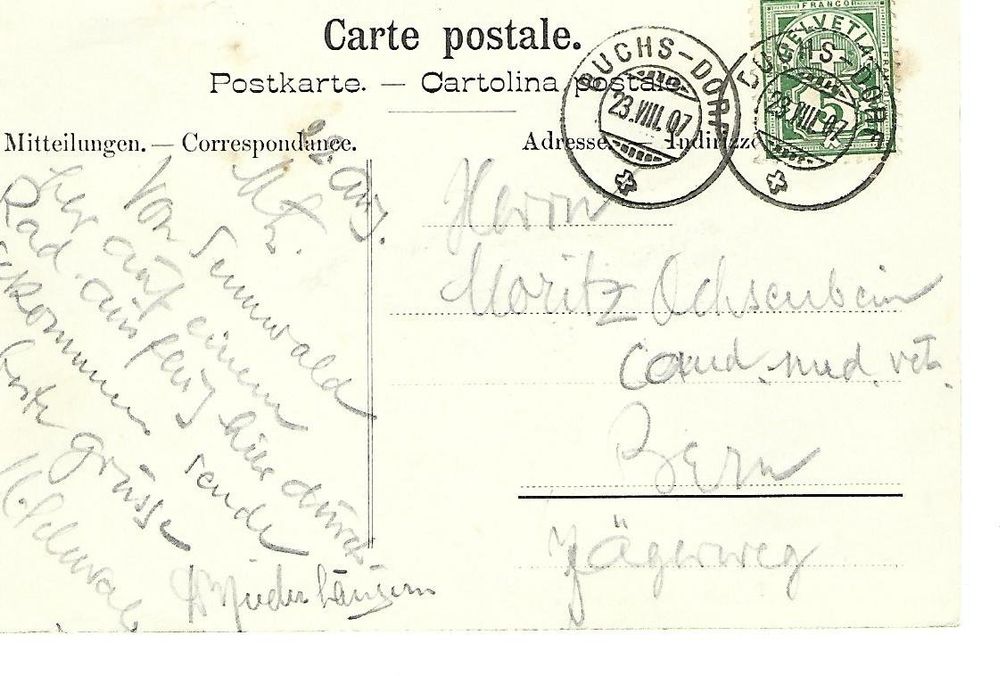 Carte postale.
Postkarte. — Cartolina postale.
Mitteilungen. — Correspondance.
Adresse. — Indirizzo
BUCHS-DORF
23.VIII.07
BUCHS-DORF
23.VIII.07
HELVETIA
FRANCO
5
22. Aug.
Von Sennwald
her auf einem
Rad-ausflug hie durch
beste Grüsse
Niederhäusern
Herrn
Moritz Ochsenbein
Cand. med. vet.
Bern
Jägerweg